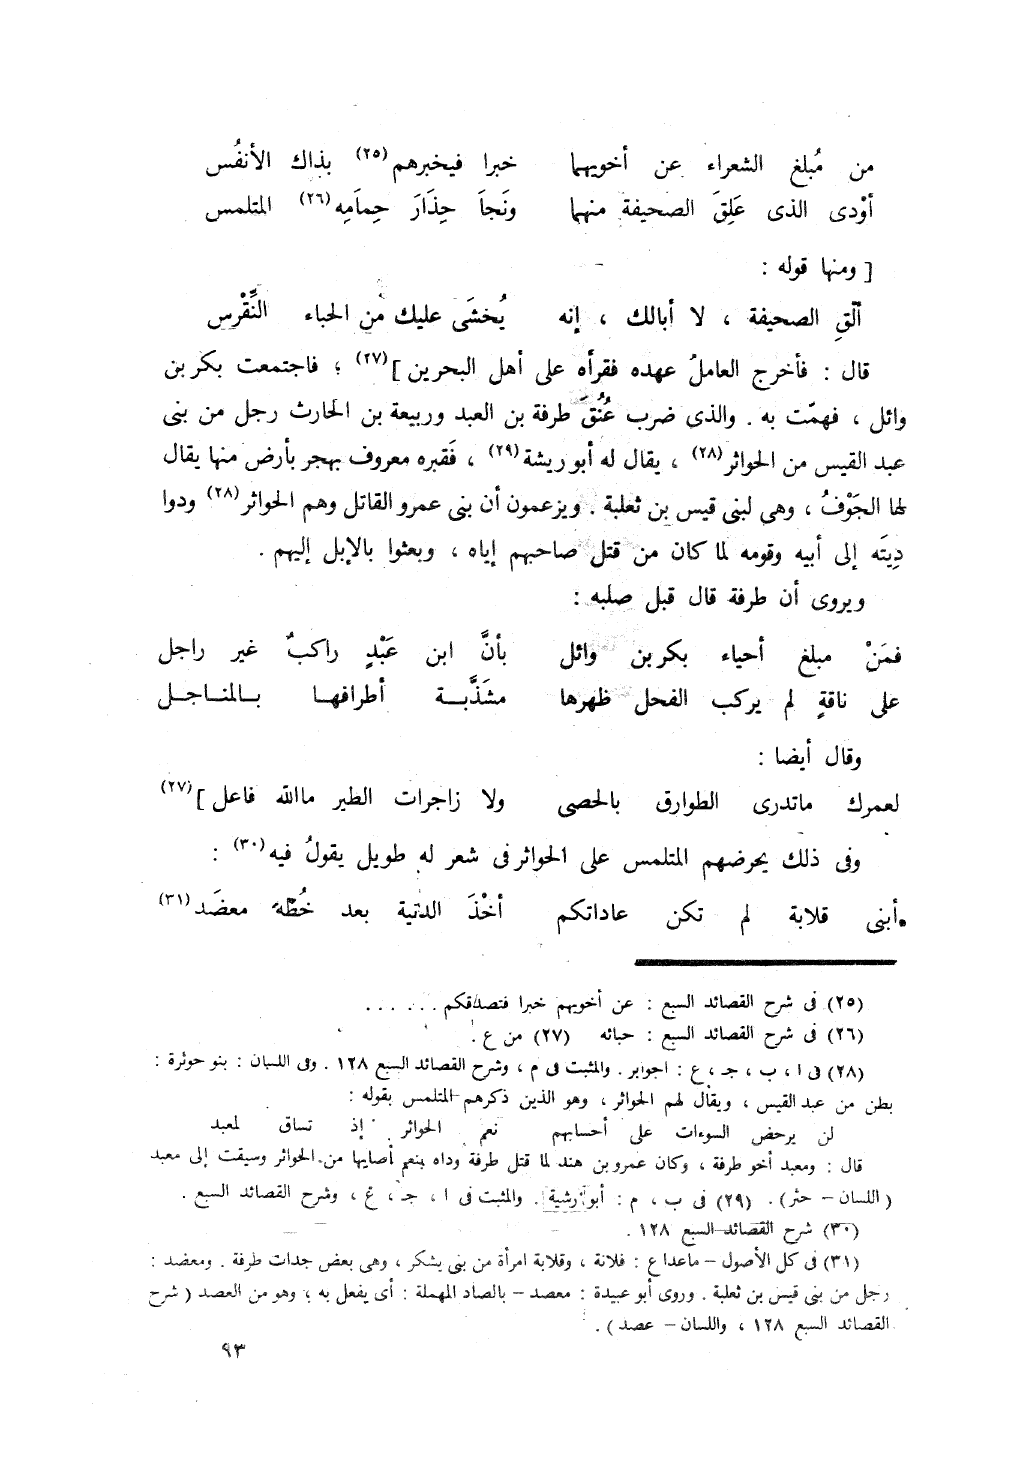 من مُبلغ الشعراء عن أخويهما خبرا فيخبرهم(٢٥) بذاك الأنفُس
أوْدى الذى عَلِقَ الصحيفة منهما ونَجاَ حِذَارَ حِماَمِه(٢٦) المتلمس
[ ومنها قوله :
ألقِ الصحيفة ، لا أبالك ، إنه يُخشَى عليك من الحباء النِّقْرس
قال : فأخرج العاملُ عهده فقرأه على أهل البحرين ](٢٧) ؛ فاجتمعت بكر بن
وائل ، فهمّت به . والذى ضرب عُنُقَ طرفة بن العبد وربيعة بن الحارث رجل من بنى
عبد القيس من الحواثر(٢٨) ، يقال له أبو ريشة(٢٩) ، فَقبره معروف بهجر بأرض منها يقال
لها الجَوْفُ ، وهى لبنى قيس بن ثعلبة . ويزعمون أن بنى عمرو القاتل وهم الحواثر(٢٨) ودوا
دِيتَه إلى أبيه وقومه لما كان من قتل صاحبهم إياه ، وبعثوا بالإبل إليهم .
ويروى أن طرفة قال قبل صلبه :
فمَنْ مبلغ أحياء بكر بن وائل بأنَّ ابن عَبْدٍ راكبٌ غير راجل
على ناقةٍ لم يركب الفحل ظهرها مشَذَّبـــة أطرافهـا بـالمنـاجـل
وقال أيضا :
لعمرك ماتدرى الطوارق بالحصى ولا زاجرات الطير ماالله فاعل ](٢٧)
وفى ذلك يحرضهم المتلمس على الحواثر فى شعر له طويل يقولُ فيه(٣٠) :
أبنى قلابة لم تكن عاداتكم أخْذَ الدنية بعد خُطَّة معضَد(٣١)
(٢٥) فى شرح القصائد السبع : عن أخويهم خبرا فتصدقكم . . . . . .
(٢٦) فى شرح القصائد السبع : حبائه (٢٧) من ع .
(٢٨) فى ا ، ب ، جـ ، ع : اجوابر . والمثبت فى م ، وشرح القصائد السبع ١٢٨ . وفى اللسان : بنو حوثرة :
بطن من عبد القيس ، ويقال لهم الحواثر ، وهو الذين ذكرهم المتلمس بقوله :
لن يرحض السوءات على أحسابهم نعم الحواثر إذ تساق لمعبد
قال : ومعبد أخو طرفة ، وكان عمرو بن هند لما قتل طرفة وداه بنعم أصابها من الحواثر وسيقت إلى معبد
( اللسان – حثر ) . (٢٩) فى ب ، م : أبو رشية . والمثبت فى ا ، جـ ، ع ، وشرح القصائد السبع .
(٣٠) شرح القصائد السبع ١٢٨ .
(٣١) فى كل الأصول – ماعدا ع : فلانة ، وقلابة امرأة من بنى يشكر ، وهى بعض جدات طرفة . ومعضد :
رجل من بنى قيس بن ثعلبة . وروى أبو عبيدة : معصد – بالصاد المهملة : أى يفعل به ؛ وهو من العصد ( شرح
القصائد السبع ١٢٨ ، واللسان – عصد ) .
٩٣